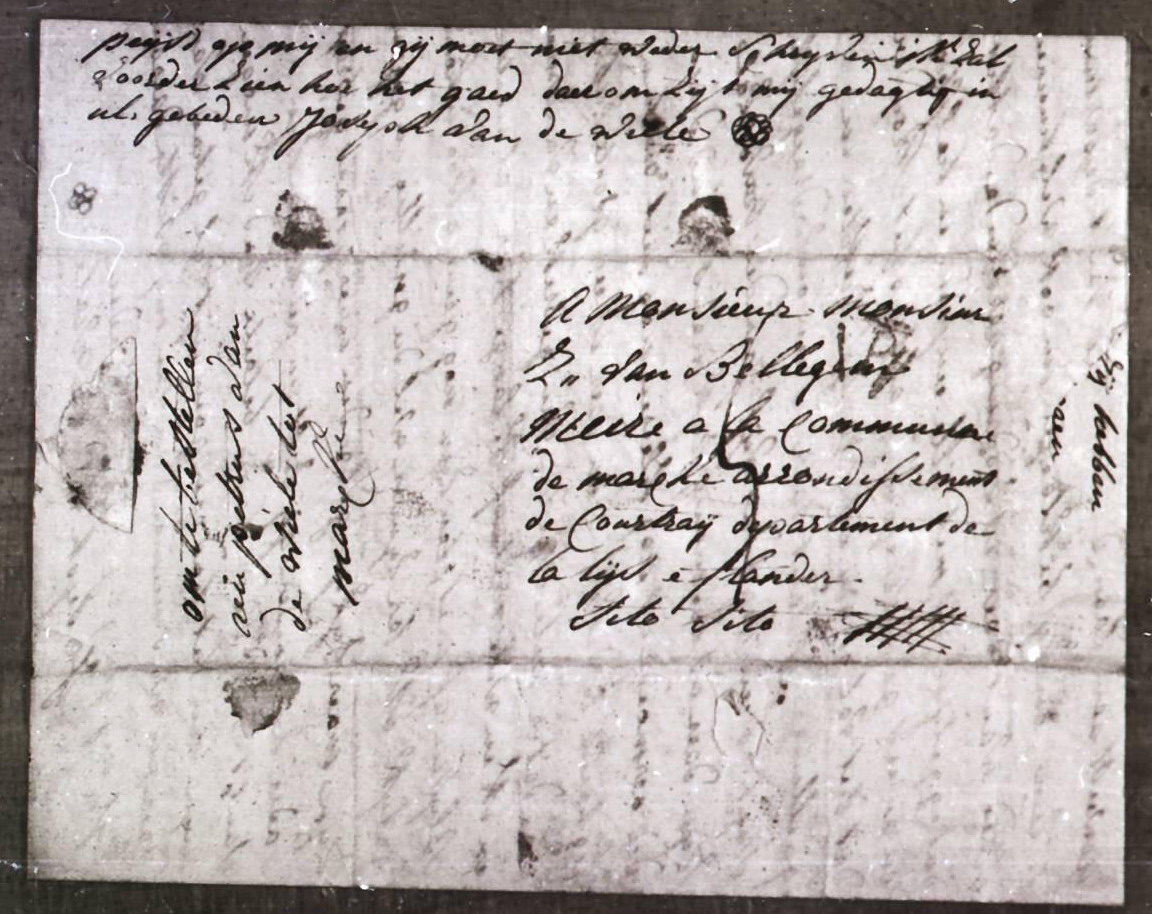 peijst op mij en gij moet niet weder schryven ik zal
voorder zien hoe het gaed daerom zijt mij gedagtig in
ul. gebeden Joseph van de wiele
A Monsieur monsieur
van Bellegem
Meire a la Commune
de marcke arrondissement
de Courtraÿ departement de
la lijs e flander
Sito Sito
om te bestellen
aen petrus van
de wiele tot
marcke
hebben
aen